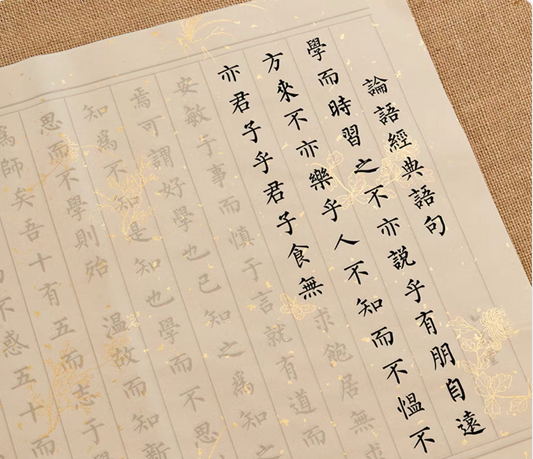 論語經典語句
學而時習之不亦説乎有朋自遠
方來不亦樂乎人不知而不愠不
亦君子乎君子食無求飽居無
安敏于事而慎于言就有道而
焉可謂好學也已知之爲知
知爲不知是知也學而不思
思而不學則殆温故而知新
爲師矣吾十有五而志于
不惑五十而